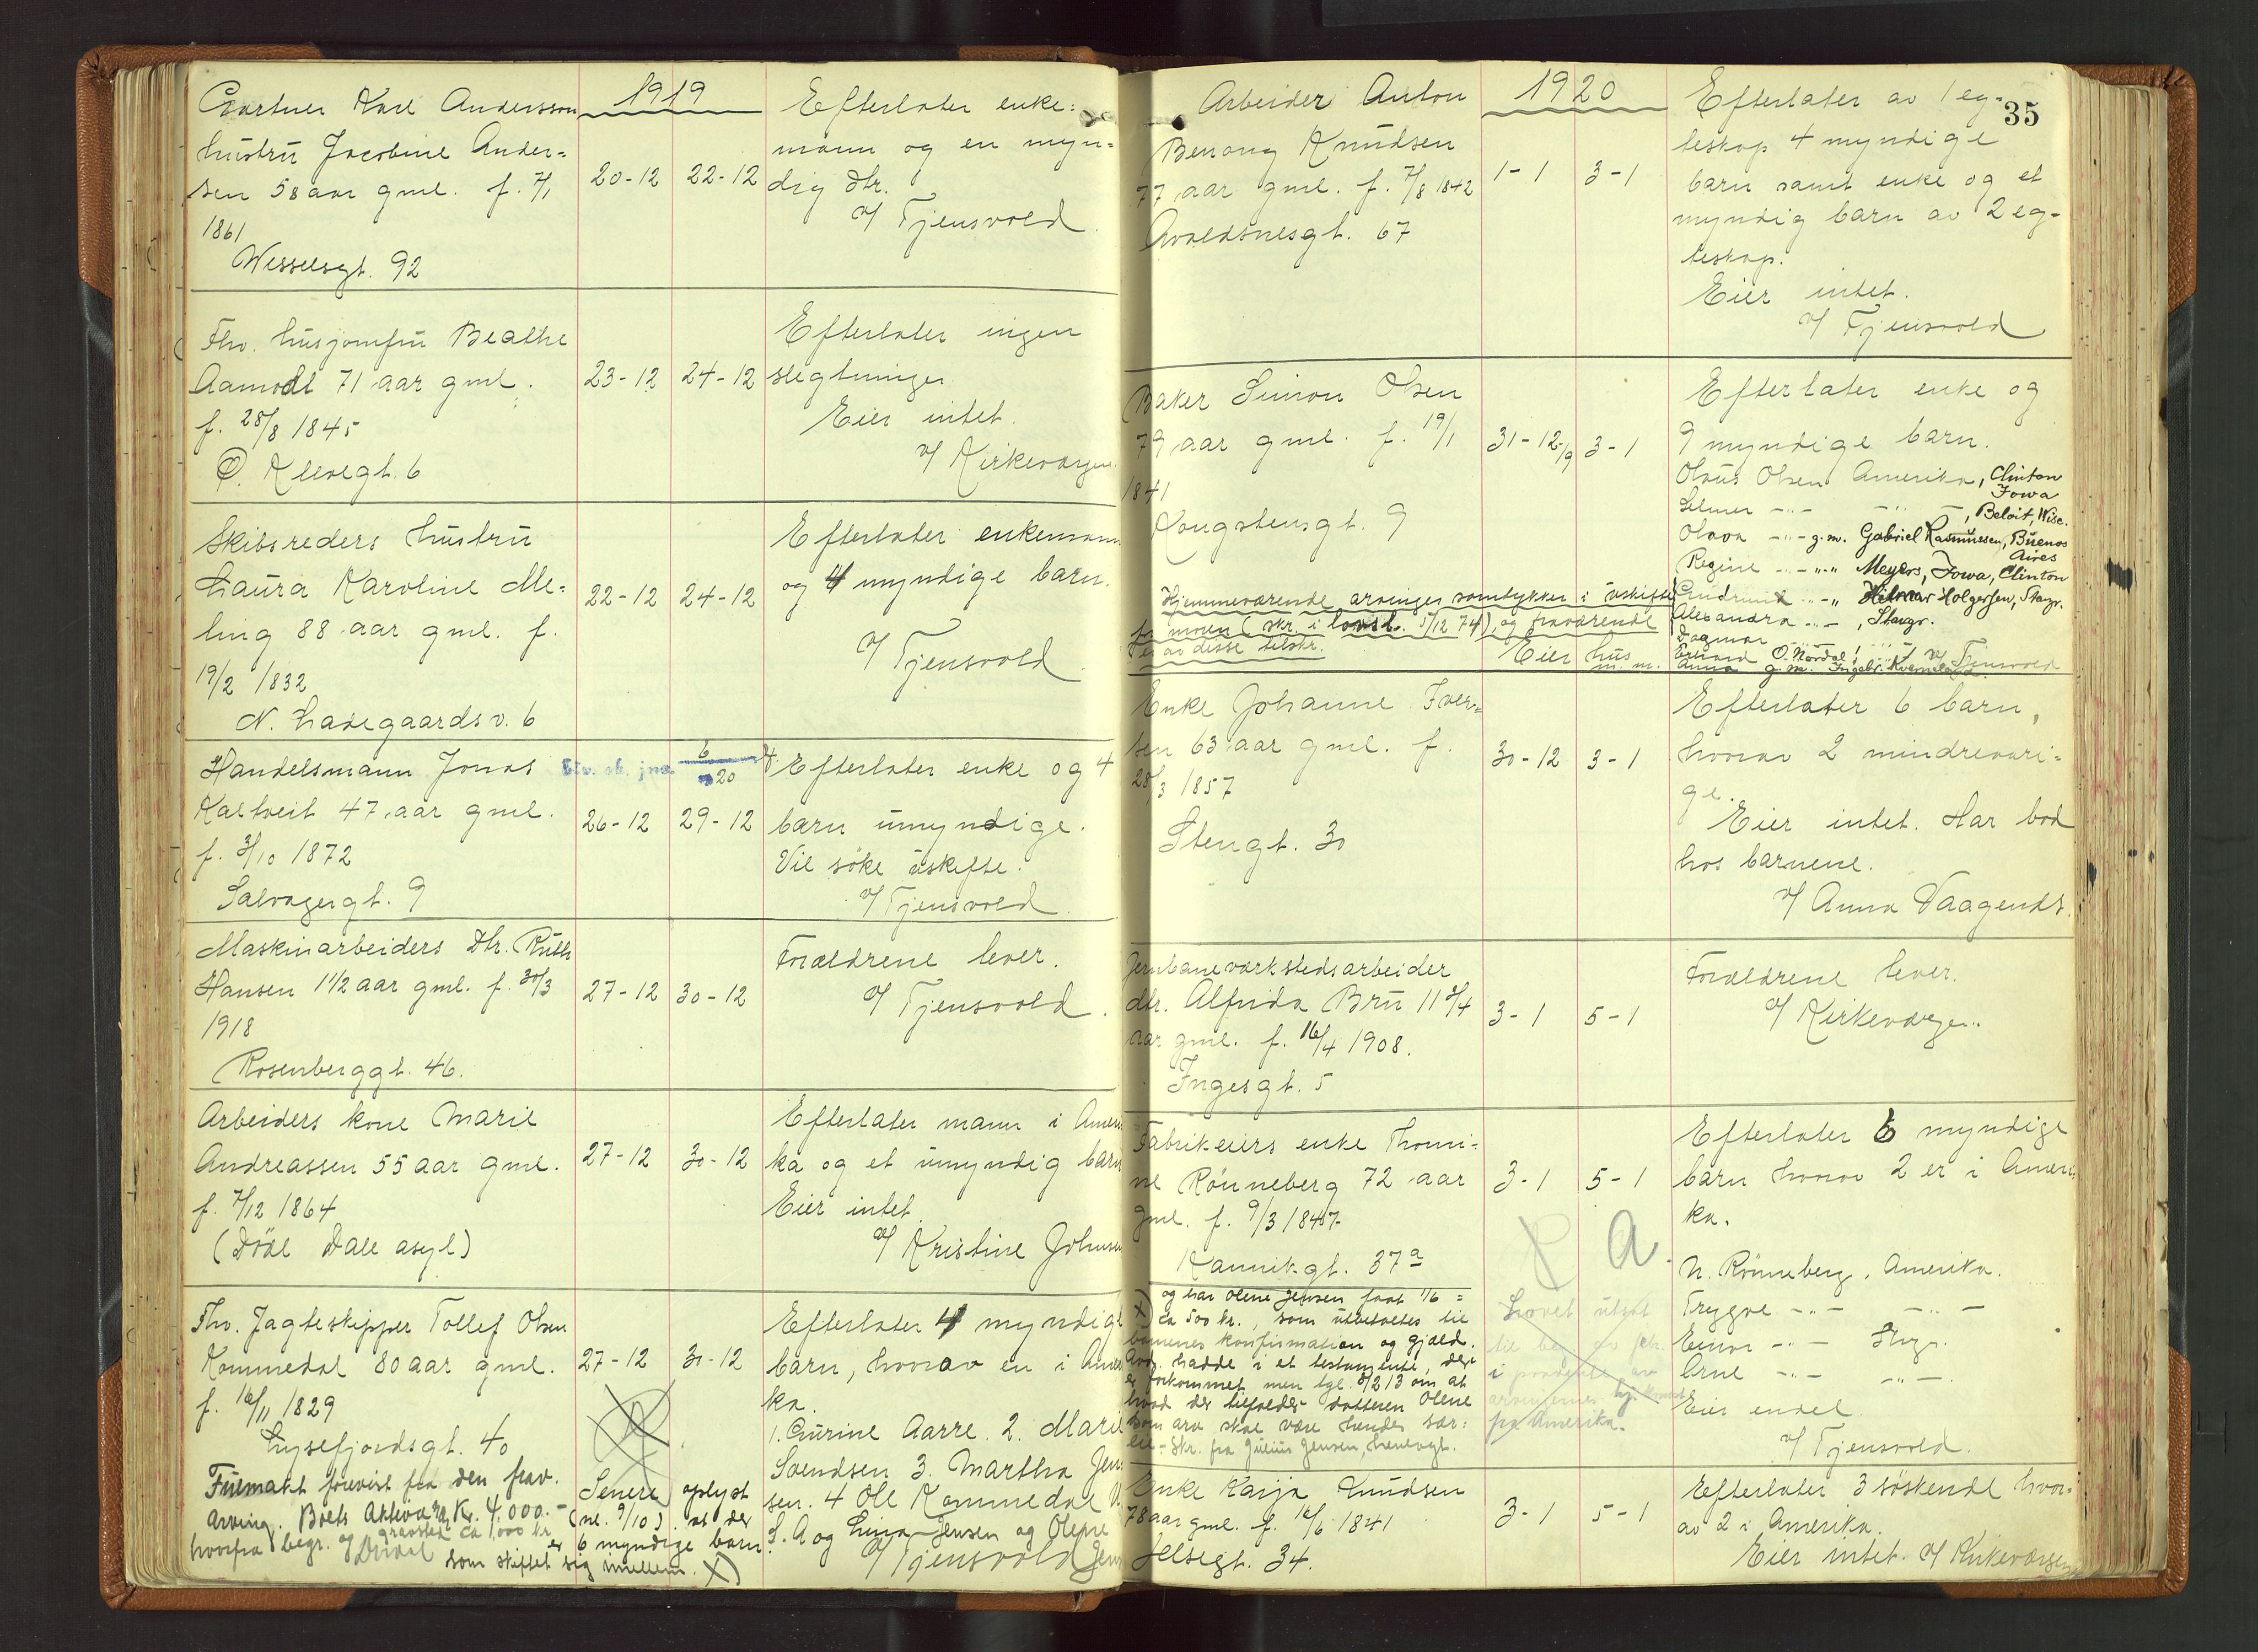 1919
Gartner Karl Andersson
hustru Jacobine Ander-
sen 58 aar gml. f. 7/1
1861
Wesselsgt. 92
20-12 22-12
Efterlater enke-
mann og en myn-
dig dtr.
v/ Tjensvold
Fhv. husjomfru Beathe
Aamodt 71 aar gml.
f. 28/8 1845
Ø. Kleivegt. 6
23-12 24-12
Efterlater ingen
slegtninger
Eier intet.
v/ Kirkevergen
Skibsreders hustru
Laura Karoline Me-
ling 88 aar gml. f.
19/2 1832
N. Ladegaardsv. 6
22-12 24-12
Efterlater enkemann
og 4 myndige barn.
v/ Tjensvold
Handelsmann Jonas
Kaltveit 47 aar gml.
f. 3/10 1872
Salvagergt. 9
26-12 29-12
Efterlater enke og 4
barn umyndige.
Vil søke uskifte.
v/ Tjensvold
Maskinarbeiders dtr. Ruth
Hansen 1 1/2 aar gml. f. 30/3
1918
Rosenberggt. 46.
27-12 30-12
Forældrene lever.
v/ Tjensvold
Arbeiders kone Marie
Andreassen 55 aar gml.
f. 7/12 1864
(Död Dale asyl)
27-12 30-12
Efterlater mann i Ameri
ka og et umyndig barn
Eier intet
v/ Kristine Johnsen
Fhv. Jagteskipper Tollef Olsen
Kommedal 80 aar gml.
f. 16/11 1829
Lysefjordsgt. 40
27-12 30-12
Efterlater 4 myndige
barn, hvorav en i Ameri
ka.
1. Gurine Aarre. 2. Marie
Svendsen 3. Martha Jen-
sen. 4 Ole Kommedal U.
S. A og Lina Jensen og Olene
v/ Tjensvold Jensen
Fuldmakt forevist fra den frav.
arving. Boets Aktiva Kr. 4.000.-
gravsted ca 1,000 kr
hvorfra begr.
Senere oplyst
(nl. 9/10) at der
er 6 myndige barn
som skiftet sig imellem. X)
1920
35
Arbeider Anton
Benony Knudsen
77 aar gml. f. 7/8 1842
Avaldsnesgt. 67
1-1 3-1
Efterlater av 1 eg-
teskap 4 myndige
barn samt enke og et
myndig barn av 2 eg-
teskap.
Eier intet.
v/ Tjensvold
Baker Simon Olsen
79 aar gml. f. 19/1
1841
Kongstensgt. 9
31-12-19 3-1
Efterlater enke og
9 myndige barn.
Olaus Olsen Amerika, Clinton
Iowa
Selmer -"- -"-, Beloit, Wisc.
Olava -"- g.m. Gabriel Rasmussen, Buenos
Aires
Regine -"- -"- Meyers, Iowa, Clinton
Gudrun -"- Hilmar Holgersen, Stavgr.
Alexandra -"-, Stavgr.
Dagmar
Erhard O. Nordal
Anna g.m. Ingebr. Kverneland
v/ Tjensvold
Hjemmeværende arvinger samtykker i uskifte
for moren (skr. i lovsk. 5/12 74), og fraværende
er av disse tilskr.
Eier hus m.m.
Enke Johanne Iver-
sen 63 aar gml. f.
28/3 1857
Stengt. 30
30-12 3-1
Efterlater 6 barn,
hvorav 2 mindreaari-
ge.
Eier intet. Har bod
hos barnene.
v/ Anna Vaagendt.
Jernbaneverkstedsarbeider
dtr. Alfrida Bru 11 3/4
aar gml. f. 16/4 1908.
Ingesgt. 5
3-1 5-1
Forældrene lever.
v/ Kirkevergen
Fabrikeiers enke Thomi-
ne Rönneberg 72 aar
gml. f. 9/3 1847
Kannikgt. 37a
3-1 5-1
a.
Efterlater 6 myndige
barn hvorav 2 er i Ameri
ka.
N. Rønneberg, Amerika.
Tryggve -"- -"-
Einar -"- Stvgr.
Arne -"- -"-
Eier endel
v/ Tjensvold.
X) og har Olene Jensen faat 1/6 =
ca 500 kr., som utbetaltes til
barnenes konfirmation og gjæld.
Avd. hadde i et testamente, der
er forkommet, men tgl. 8/2 13 om at
hvad der tilfalder datteren Olene
som arv skal være hendes sær-
eie - Skr. fra Julius Jensen, Lenevgt.
Lovet utsat
fra Amerika.
Enke Kaija Knudsen
78 aar gml. f. 16/6 1841
Jelsegt. 34.
3-1 5-1
Efterlater 3 søskende hvor-
av 2 i Amerika.
Eier intet. v/ Kirkevergen